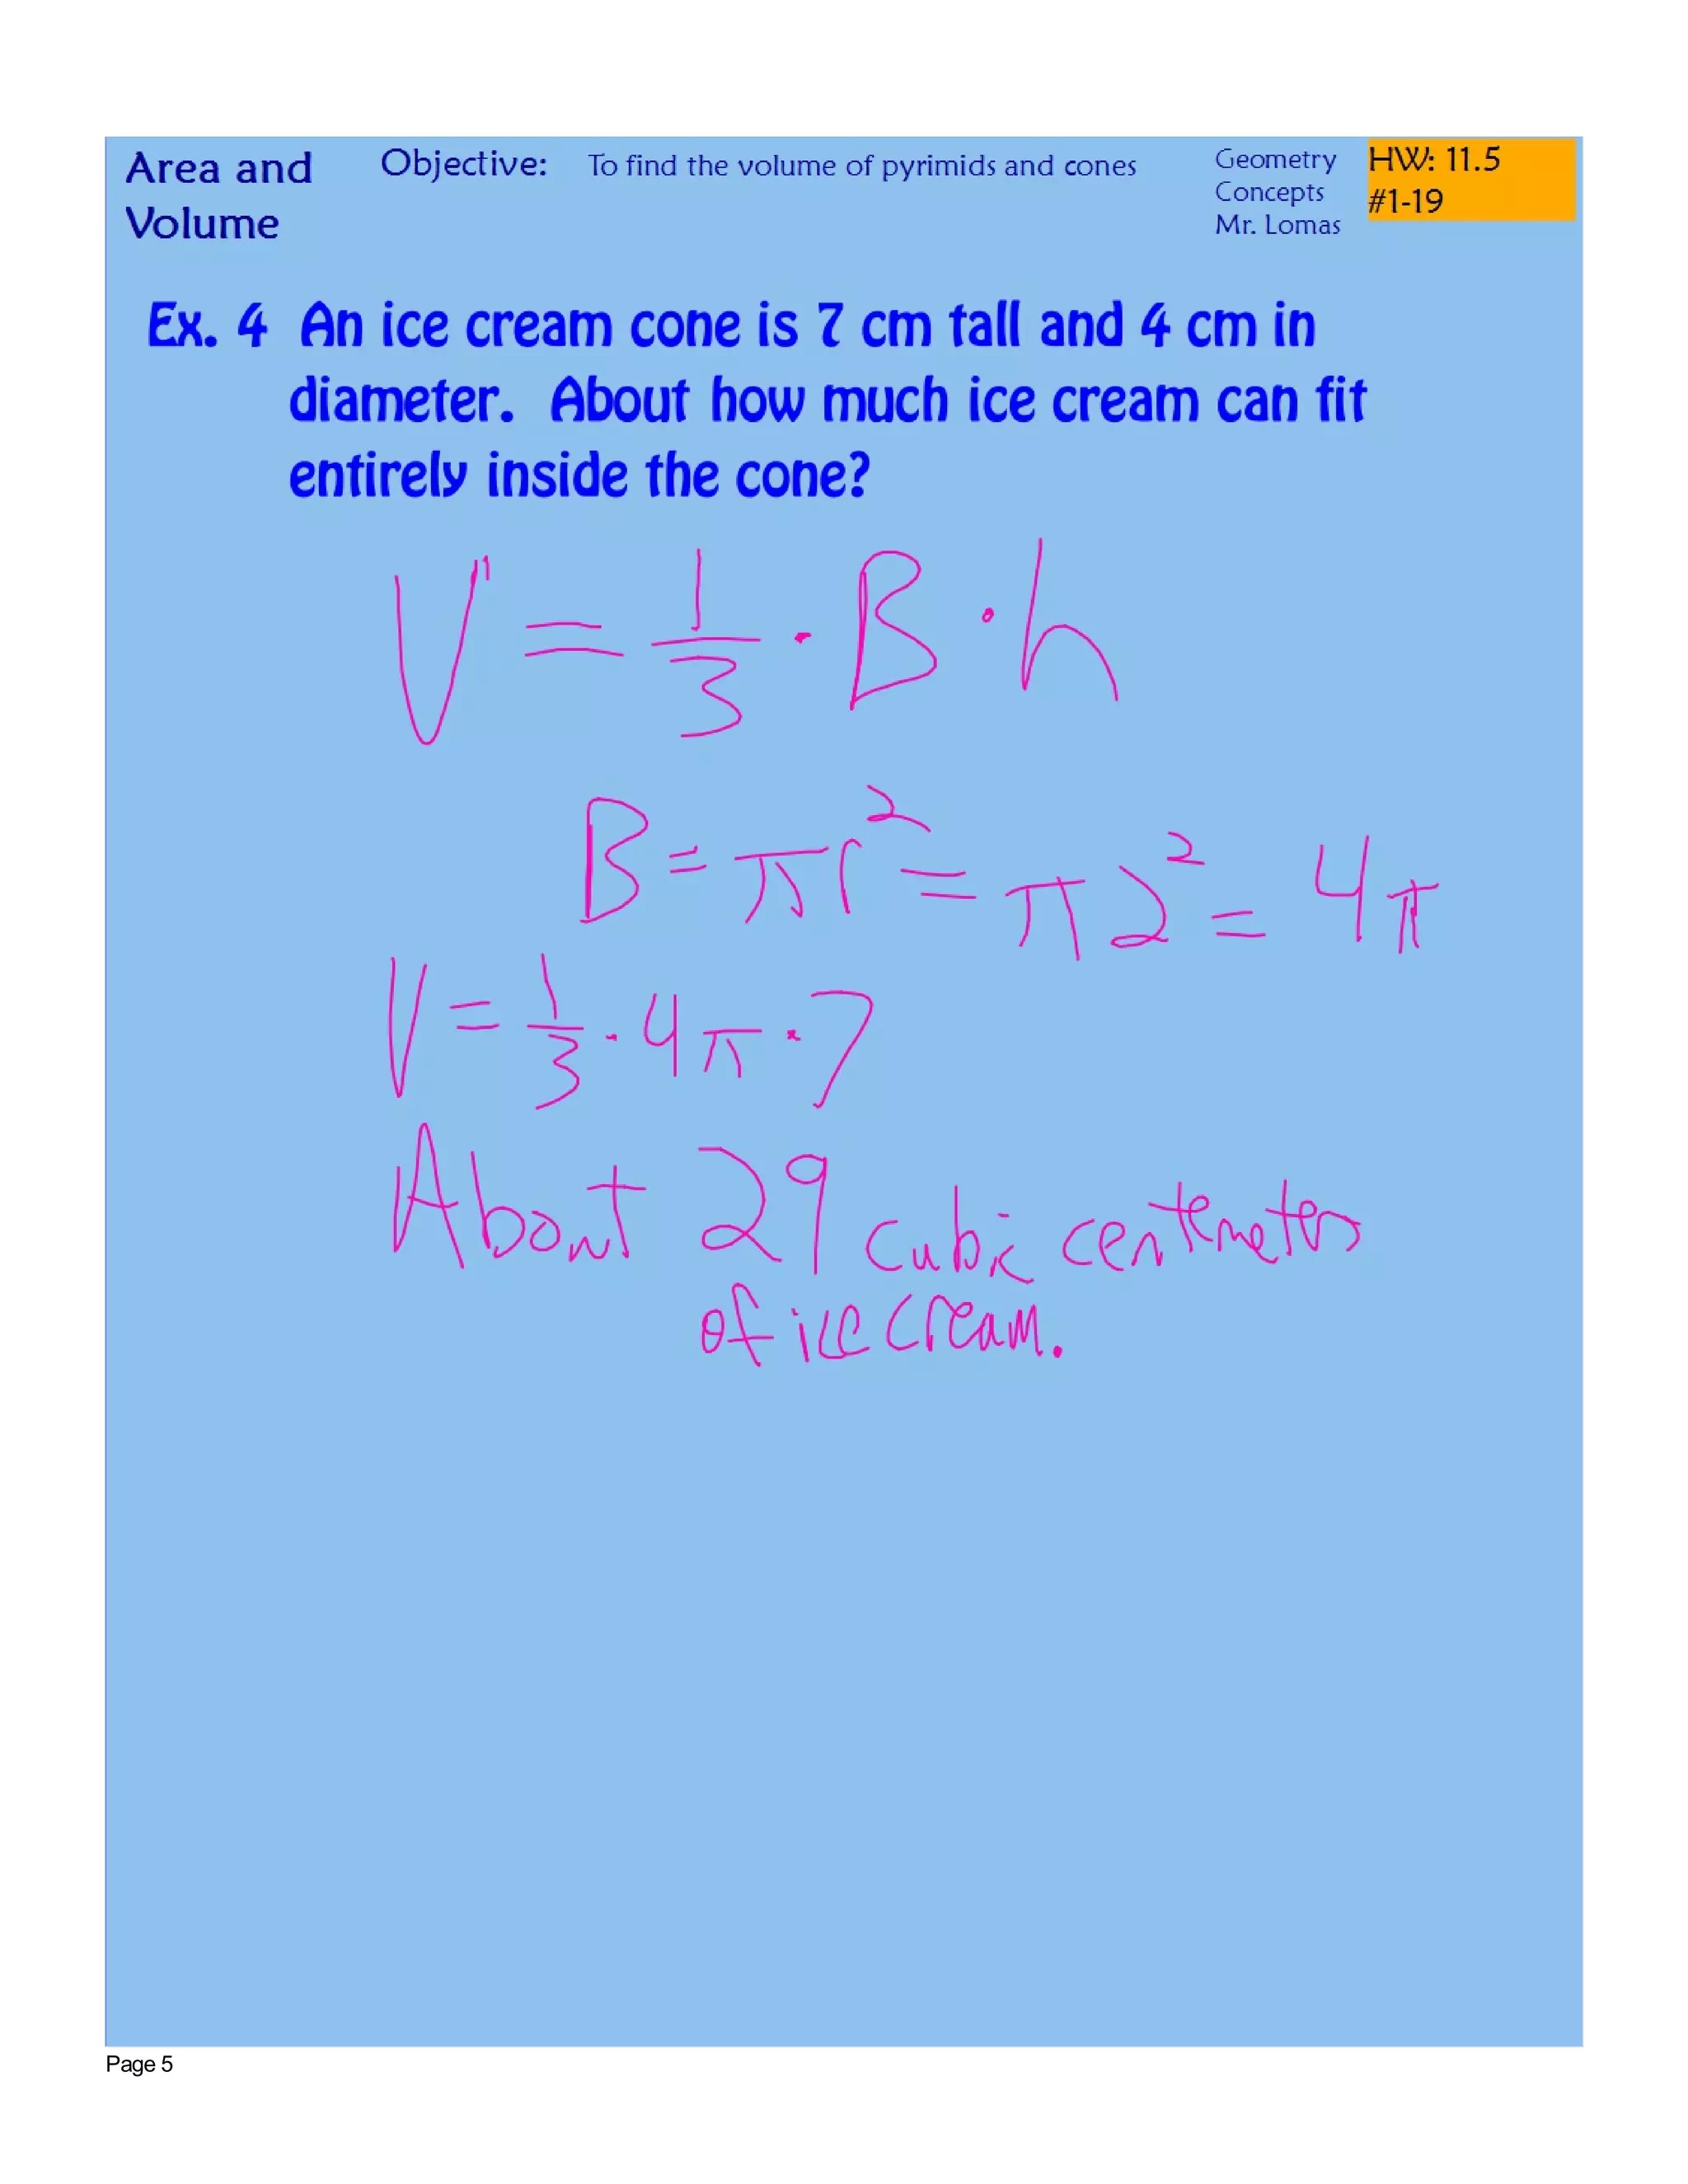 Area and
Volume
Objective: To find the volume of pyrimids and cones
Geometry
Concepts
Mr. Lomas
HW: 11.5
#1-19
Ex. 4 An ice cream cone is 7 cm tall and 4 cm in
diameter. About how much ice cream can fit
entirely inside the cone?
V = 1/3 · B · h
B = πr² = π2² = 4π
V = 1/3 · 4π · 7
About 29 cubic centemeters
of ice cream.
Page 5